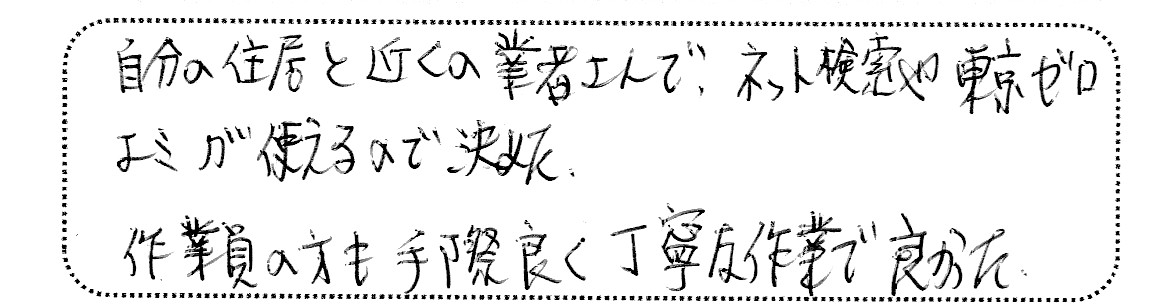 自分の住居と近くの業者さんで、ネット検索や東京ゼロ
エミが使えるので決めた.
作業員の方も手際良く丁寧な作業で良かった.